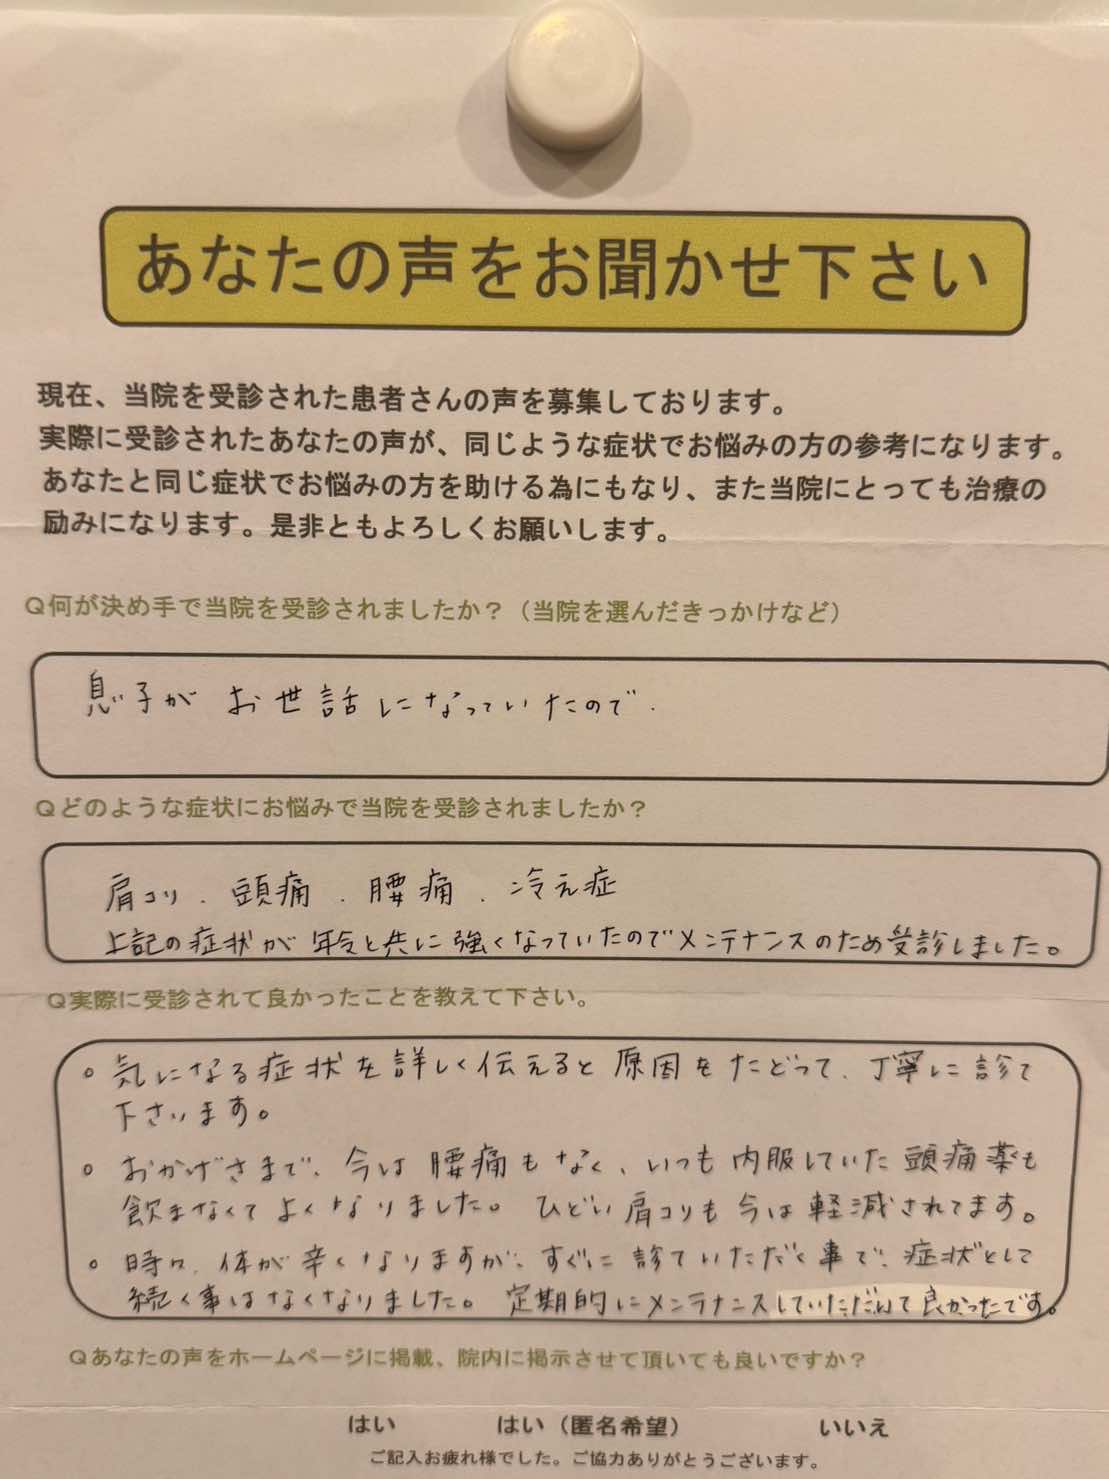 あなたの声をお聞かせ下さい
現在、当院を受診された患者さんの声を募集しております。
実際に受診されたあなたの声が、同じような症状でお悩みの方の参考になります。
あなたと同じ症状でお悩みの方を助ける為にもなり、また当院にとっても治療の
励みになります。是非ともよろしくお願いします。
Q何が決め手で当院を受診されましたか？（当院を選んだきっかけなど）
息子が お世話になっていたので.
Qどのような症状にお悩みで当院を受診されましたか？
肩コリ . 頭痛 . 腰痛 . 冷え症
上記の症状が 年令と共に強くなっていたのでメンテナンスのため受診しました。
Q実際に受診されて良かったことを教えて下さい。
。気になる症状を詳しく伝えると原因をたどって、丁寧に診て
下さいます。
。おかげさまで、今は腰痛もなく、いつも内服していた頭痛薬も
飲まなくてよくなりました。ひどい肩コリも今は軽減されてます。
。時々、体が辛くなりますが、すぐに診ていただく事で、症状として
続く事はなくなりました。定期的にメンテナンスしていただいて良かったです。
Qあなたの声をホームページに掲載、院内に掲示させて頂いても良いですか？
はい はい（匿名希望） いいえ
ご記入お疲れ様でした。ご協力ありがとうございます。